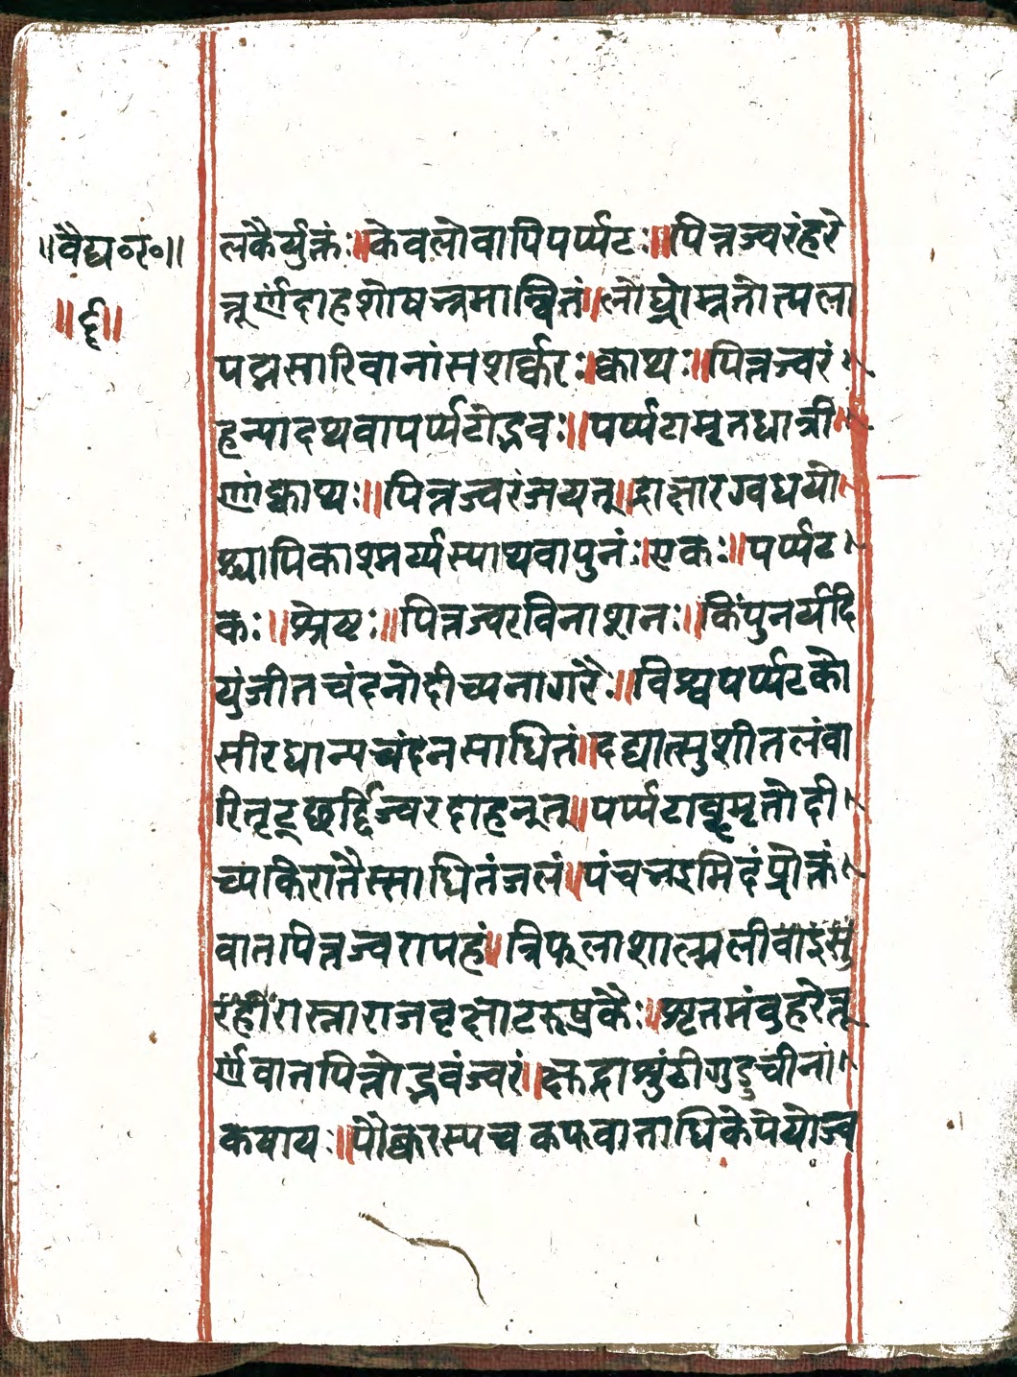 ॥वैद्य॰र॰॥
॥६॥
लकैर्युक्तंः॥केवलोवापिपर्प्पटः॥पित्तज्वरंहरे
त्तूर्णंदाहशोषभ्रमान्वितं॥लोध्रोम्रतोत्पला
पद्मसारिवानांसशर्क्करः॥क्वाथः॥पित्तज्वरं
हन्यादथवापर्प्पटोद्भवः॥पर्प्पटामृतधात्री
णांक्वाथः॥पित्तज्वरंजयेत्॥द्राक्षारग्वधयो
श्चापिकाश्मर्य्यस्याथवापुनंः॥एकः॥पर्प्पट
कः॥श्रेष्टः॥पित्तज्वरविनाशनः॥किंपुनर्यदि
युंजीतचंदनोदीच्यनागरैः॥विश्वपर्प्पटको
सीरधान्यचंदनसाधितं॥दद्यात्सुशीतलंवा
रितृट्छर्द्दिज्वरदाहनुत्॥पर्प्पटाब्दामृतोदी
च्यकिरातैस्साधितंजलं॥पंचभद्रमिदंप्रोक्तं
वातपित्तज्वरापहं॥त्रिफलाशाल्मलीवा
रास्नाराजवृक्षाटरूषकैः॥शृतमंबुहरेत्तू
र्णंवातपित्तोद्भवंज्वरं॥क्षुद्राशुंठीगुडुचीनां
कषायः॥पौष्करस्यचकफवाताधिकेपेयोज्व